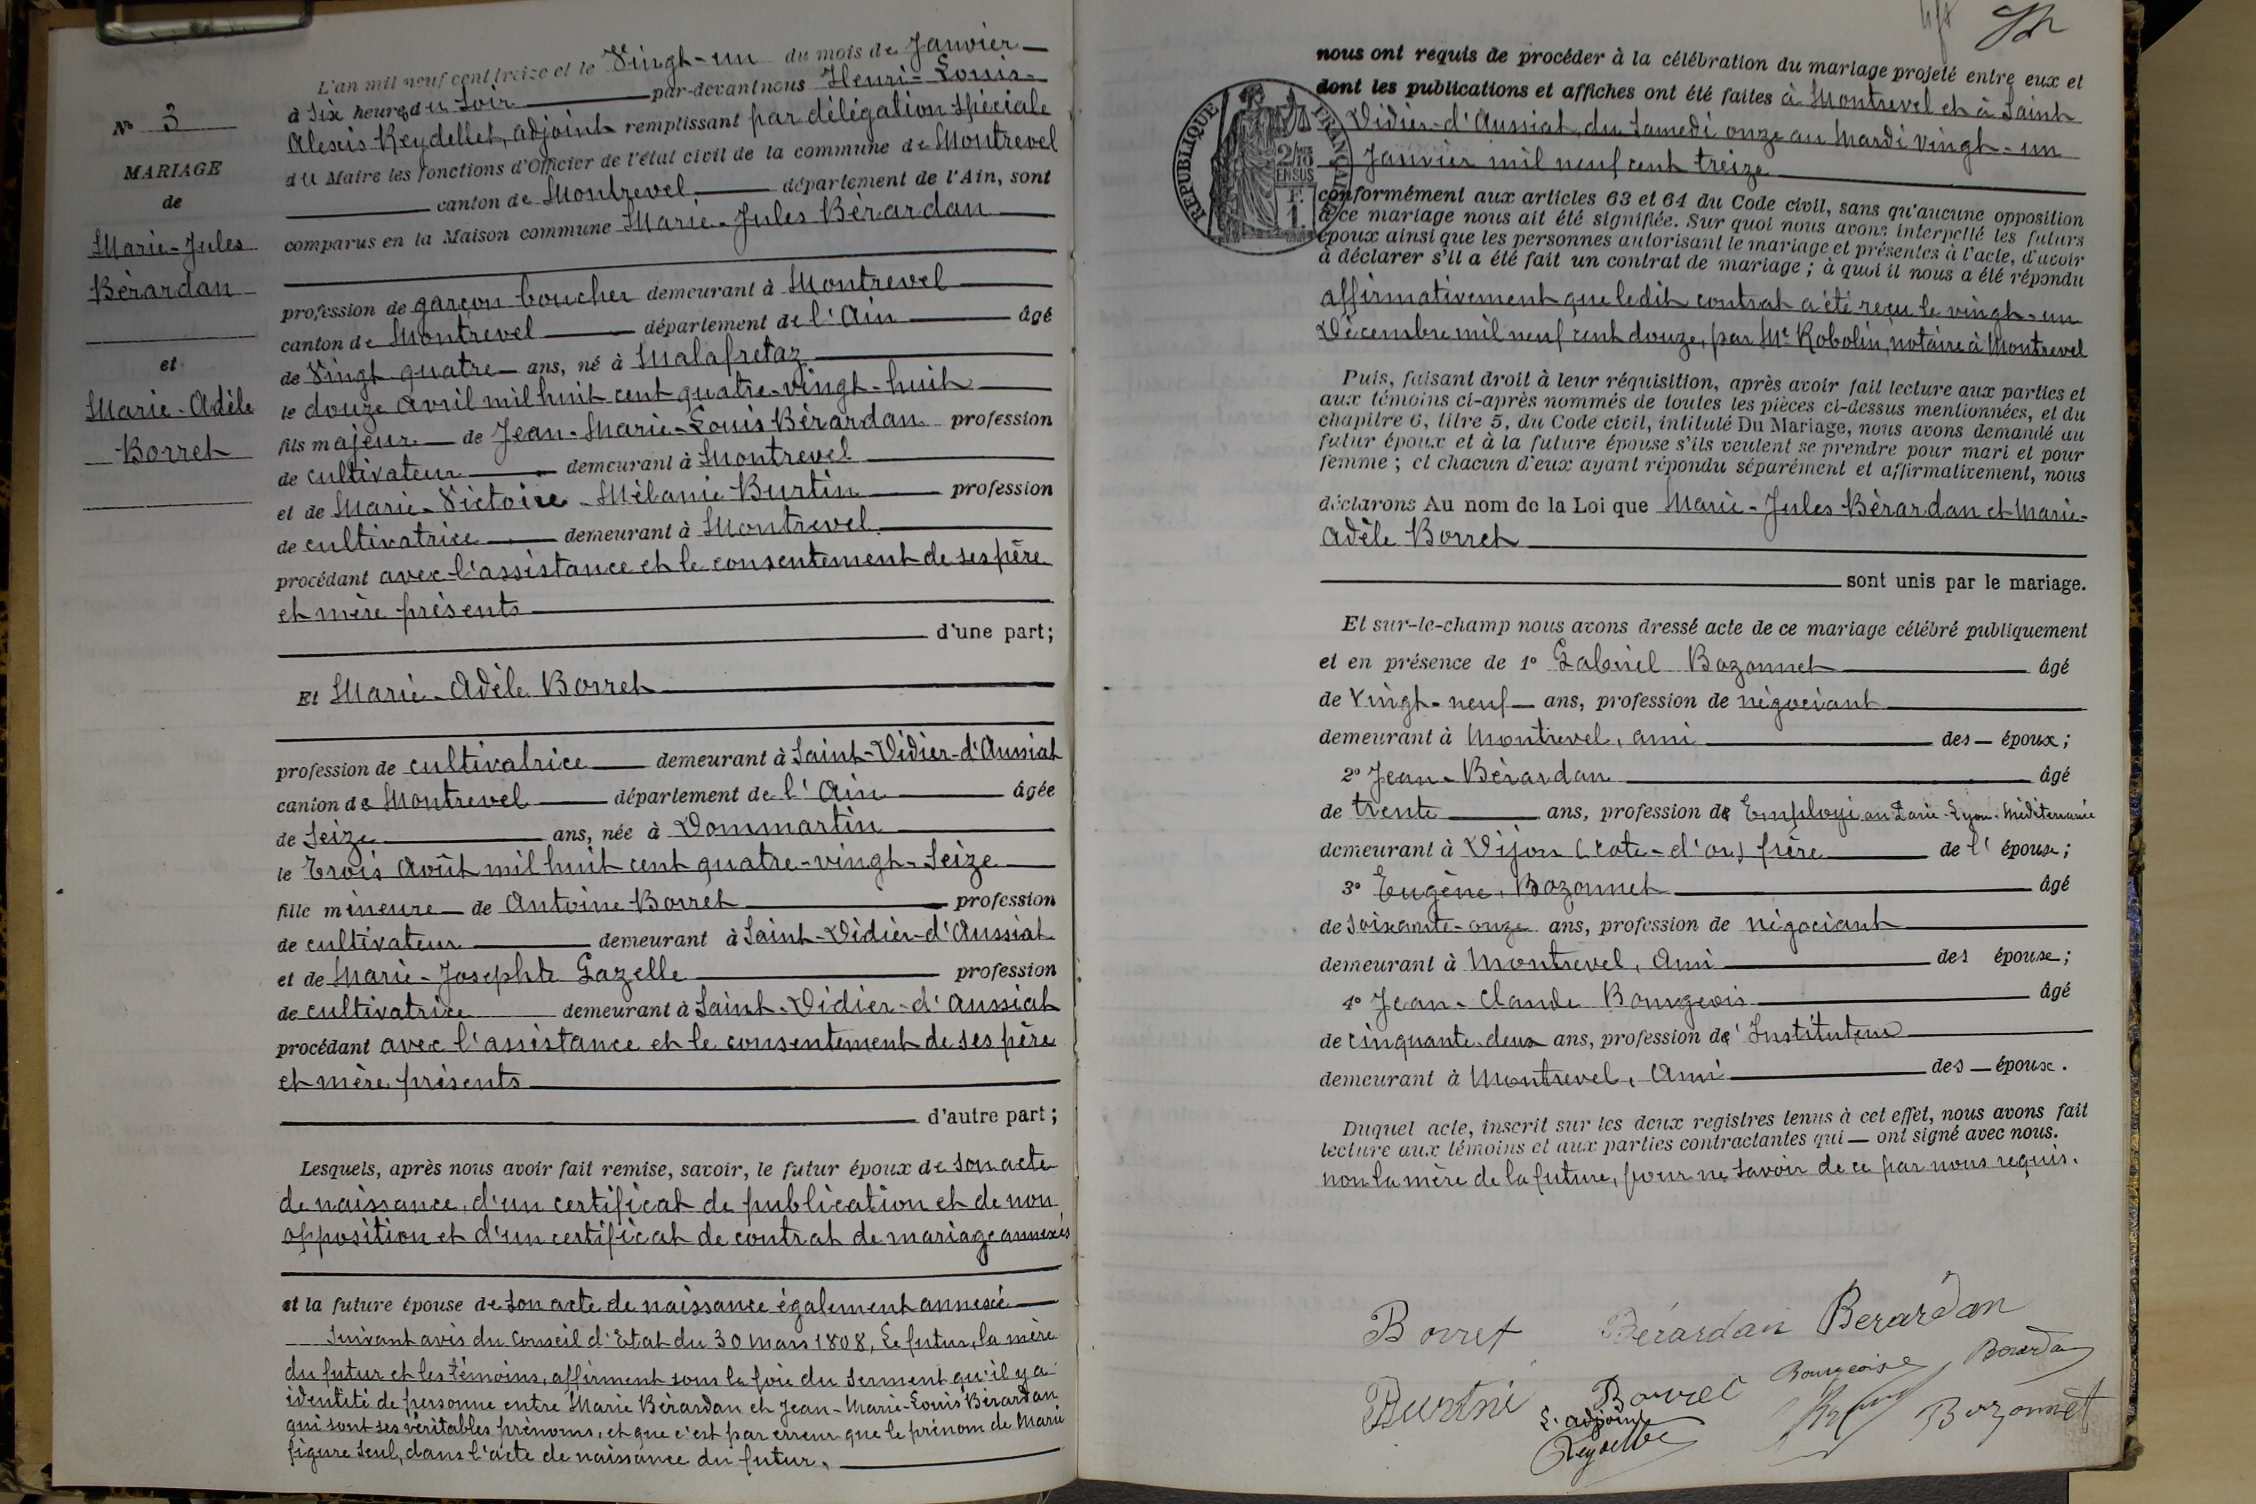 N° 3
MARIAGE
de
Marie-Jules
Bérardan
et
Marie-Adèle
Borret
L'an mil neuf cent treize et le Vingt-un du mois de Janvier
à Six heures du Soir par-devant nous Henri-Louis-
Alexis Reydellet, adjoint remplissant par délégation spéciale
du Maire les fonctions d'Officier de l'état civil de la commune de Montrevel
canton de Montrevel département de l'Ain, sont
comparus en la Maison commune Marie-Jules Bérardan
profession de garçon boucher demeurant à Montrevel
canton de Montrevel département de l'Ain âgé
de Vingt quatre ans, né à Malafretaz
le douze Avril mil huit cent quatre-vingt-huit
fils majeur de Jean-Marie-Louis Bérardan profession
de cultivateur demeurant à Montrevel
et de Marie-Victoire-Mélanie Burtin profession
de cultivatrice demeurant à Montrevel
procédant avec l'assistance et le consentement de ses père
et mère présents
d'une part;
Et Marie-Adèle Borret
profession de cultivatrice demeurant à Saint-Didier-d'Aussiat
canton de Montrevel département de l'Ain âgée
de Seize ans, née à Dommartin
le Trois Août mil huit cent quatre-vingt-Seize
fille mineure de Antoine Borret profession
de cultivateur demeurant à Saint-Didier-d'Aussiat
et de Marie-Josephte Gazelle profession
de cultivatrice demeurant à Saint-Didier-d'Aussiat
procédant avec l'assistance et le consentement de ses père
et mère présents
d'autre part;
Lesquels, après nous avoir fait remise, savoir, le futur époux de son acte
de naissance, d'un certificat de publication et de non
opposition et d'un certificat de contrat de mariage annexés
et la future épouse de son acte de naissance également annexé
Suivant avis du Conseil d'Etat du 30 Mars 1808, Le futur, la mère
du futur et les témoins, affirment sous la foie du Serment qu'il y a
identité de personne entre Marie Bérardan et Jean-Marie-Louis Bérardan
qui sont ses véritables prénoms, et que c'est par erreur que le prénom de Marie
figure seul, dans l'acte de naissance du futur.
nous ont requis de procéder à la célébration du mariage projeté entre eux et
dont les publications et affiches ont été faites à Montrevel et à Saint
Didier-d'Aussiat, du Samedi onze au Mardi Vingt-un
Janvier mil neuf cent treize
REPUBLIQUE FRANÇAISE
2/10
EN SUS
F.
1.
conformément aux articles 63 et 64 du Code civil, sans qu'aucune opposition
à ce mariage nous ait été signifiée. Sur quoi nous avons interpellé les futurs
époux ainsi que les personnes autorisant le mariage et présentes à l'acte, d'avoir
à déclarer s'il a été fait un contrat de mariage; à quoi il nous a été répondu
affirmativement que ledit contrat a été reçu le vingt-un
Décembre mil neuf cent douze, par Me Robolin, notaire à Montrevel
Puis, faisant droit à leur réquisition, après avoir fait lecture aux parties et
aux témoins ci-après nommés de toutes les pièces ci-dessus mentionnées, et du
chapitre 6, titre 5, du Code civil, intitulé Du Mariage, nous avons demandé au
futur époux et à la future épouse s'ils veulent se prendre pour mari et pour
femme; et chacun d'eux ayant répondu séparément et affirmativement, nous
déclarons Au nom de la Loi que Marie-Jules Bérardan et Marie-
Adèle Borret
sont unis par le mariage.
Et sur-le-champ nous avons dressé acte de ce mariage célébré publiquement
et en présence de 1° Gabriel Bozonnet âgé
de Vingt-neuf ans, profession de négociant
demeurant à Montrevel, ami des époux;
2° Jean-Bérardan âgé
de trente ans, profession d' Employé au Paris-Lyon-Méditerranée
demeurant à Dijon (Côte-d'or) frère de l'époux;
3° Eugène Bozonnet âgé
de Soixante-onze ans, profession de négociant
demeurant à Montrevel, Ami des épouse;
4° Jean-Claude Bourgeois âgé
de cinquante-deux ans, profession d' Instituteur
demeurant à Montrevel, Ami des épouse.
Duquel acte, inscrit sur les deux registres tenus à cet effet, nous avons fait
lecture aux témoins et aux parties contractantes qui ont signé avec nous.
non la mère de la future, pour ne savoir de ce par nous requis.
Borret Bérardan Berardan
Burtin Borret Bourgeoise Berardan
L'adjoint Bozonnet
Reydellet